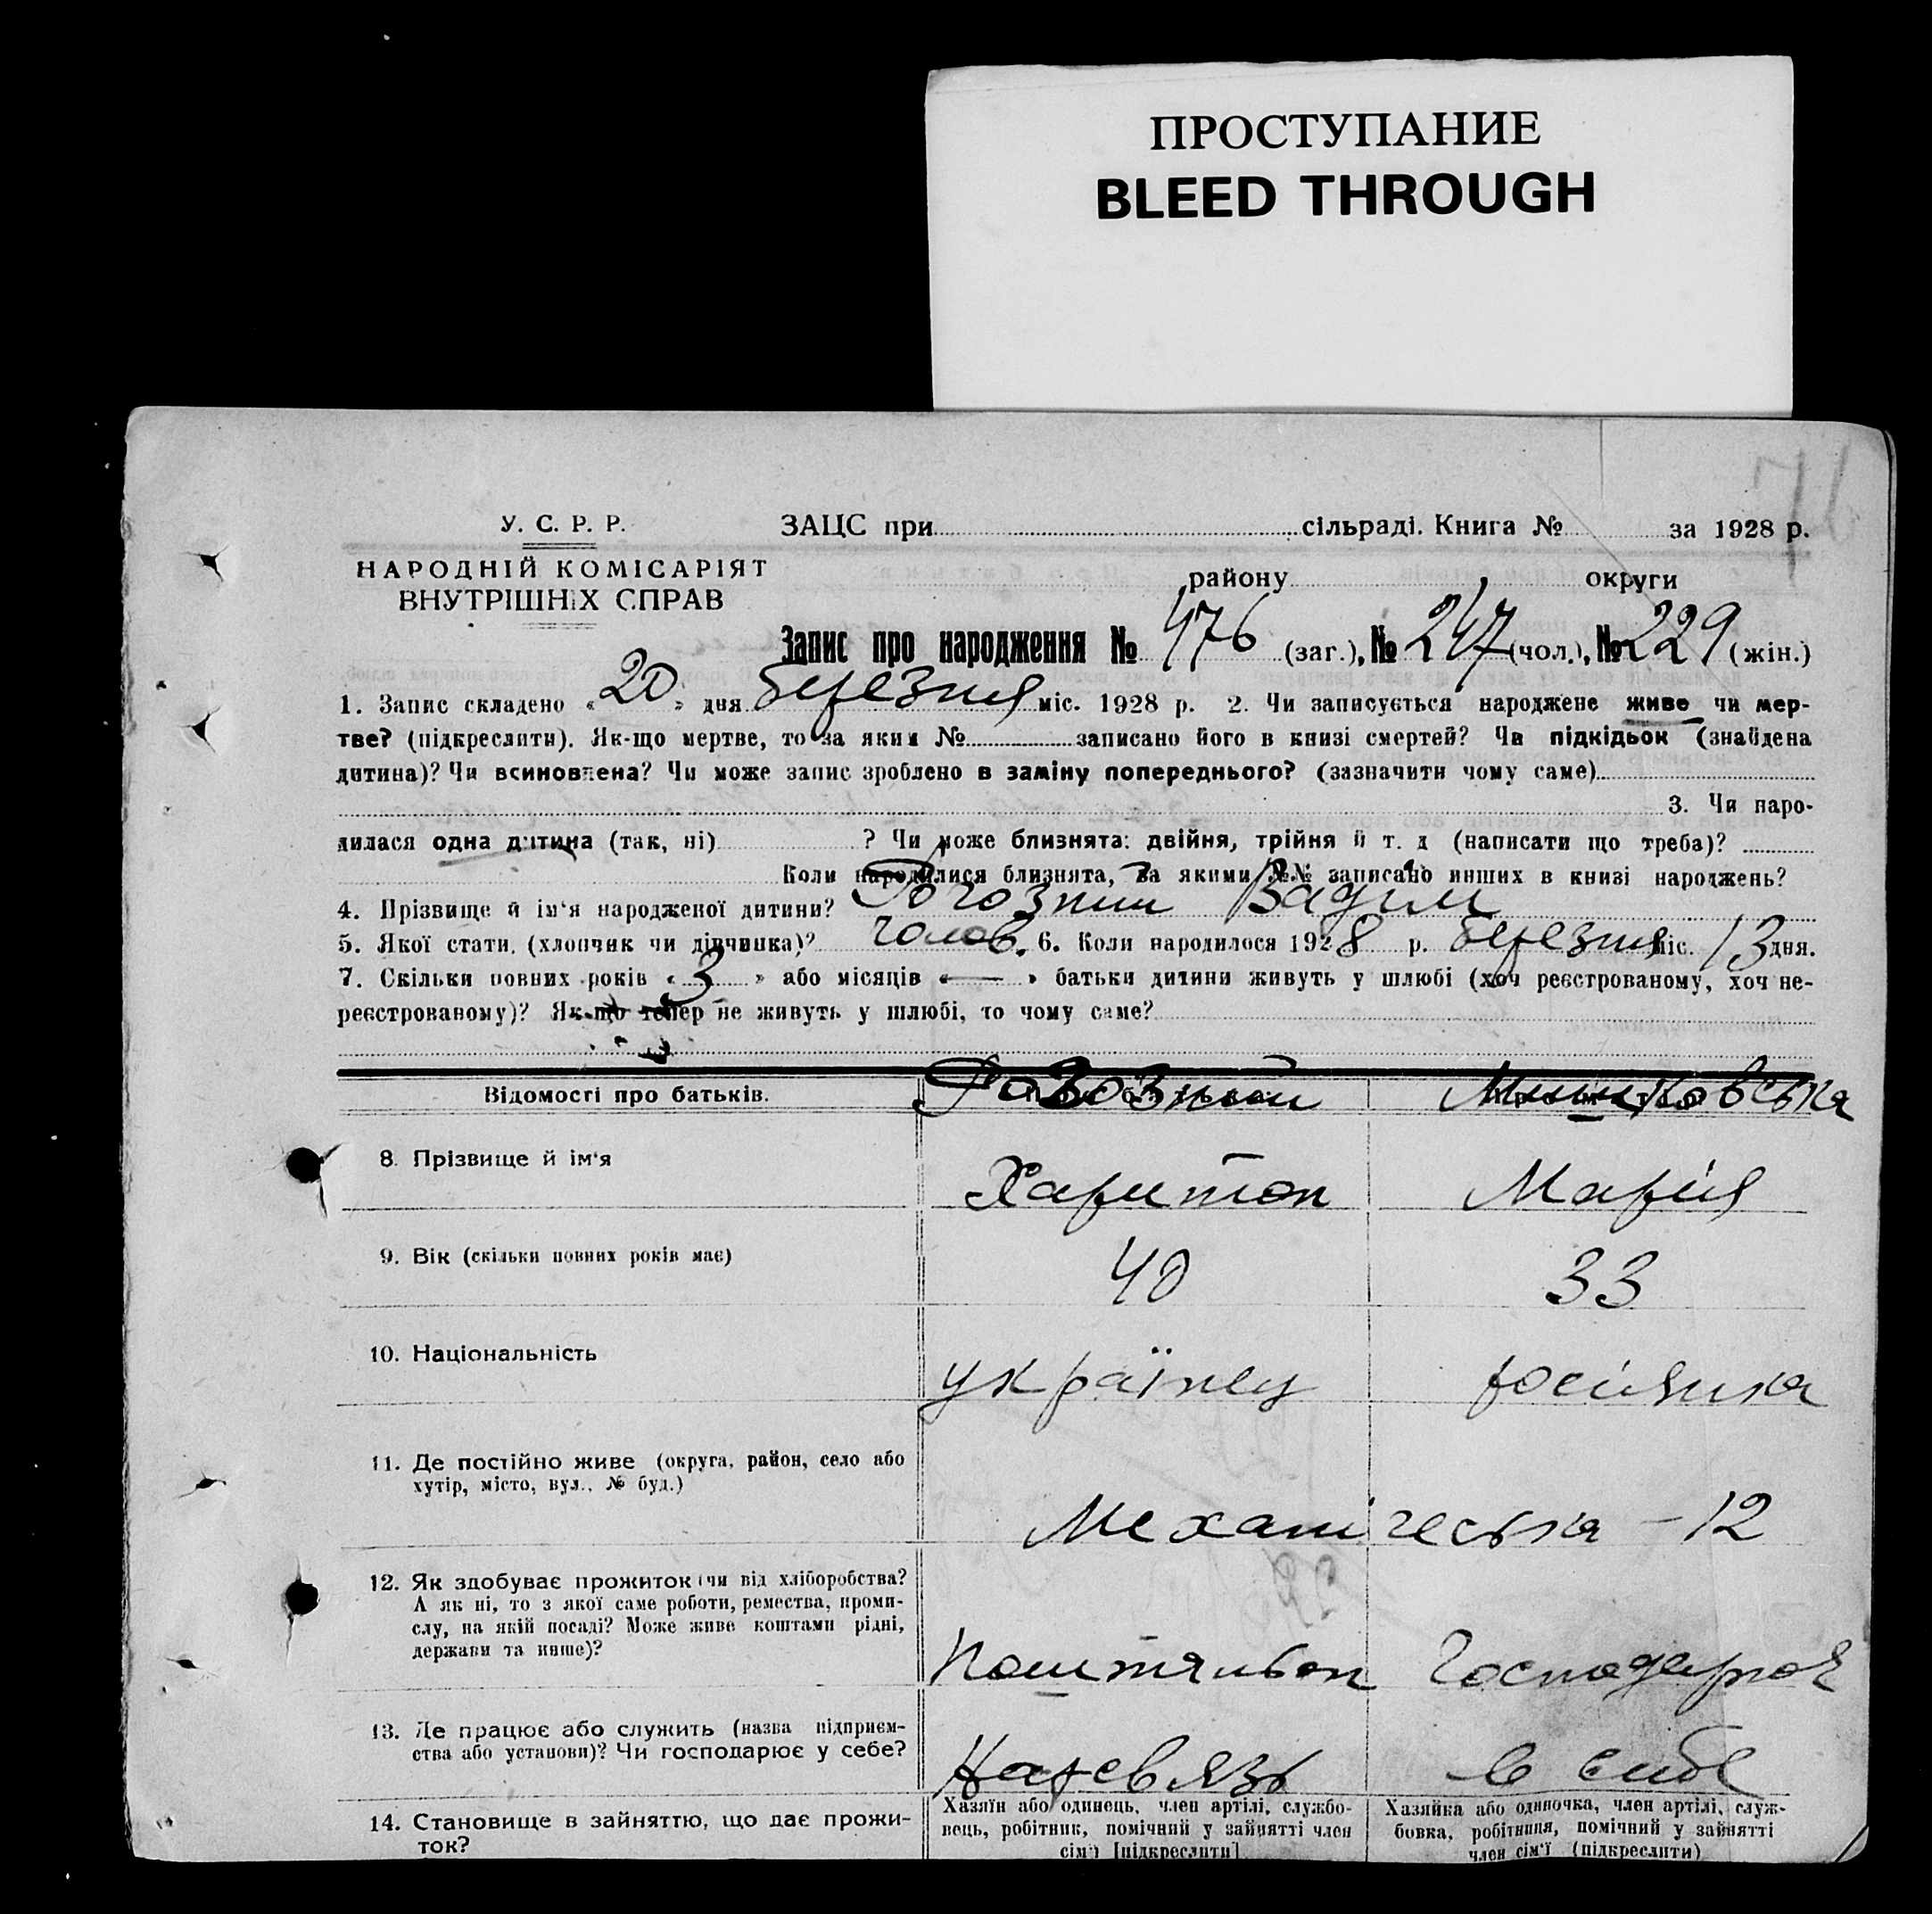 ПРОСТУПАНИЕ
BLEED THROUGH
У. С. Р. Р.
НАРОДНІЙ КОМІСАРІЯТ
ВНУТРІШНІХ СПРАВ
ЗАЦС при сільраді. Книга № за 1928 р.
району округи
Запис про народження № 476 (заг.), № 247 (чол.), № 229 (жін.)
1. Запис складено «20» дня березня міс. 1928 р. 2. Чи записується народжене живе чи мер-
тве? (підкреслити). Як-що мертве, то за яким № записано його в книзі смертей? Чи підкідьок (знайдена
дитина)? Чи всиновлена? Чи може запис зроблено в заміну попереднього? (зазначити чому саме)
3. Чи наро-
дилася одна дитина (так, ні) ? Чи може близнята: двійня, трійня й т. д (написати що треба)?
Коли народилися близнята, за якими №№ записано инших в книзі народжень?
4. Прізвище й ім'я народженої дитини? Рогозний Вадим
5. Якої стати, (хлопчик чи дівчинка)? чолов. 6. Коли народилося 1928 р. березня міс. 13 дня.
7. Скільки повних років «3» або місяців «—» батьки дитини живуть у шлюбі (хоч реєстрованому, хоч не-
реєстрованому)? Як-що тепер не живуть у шлюбі, то чому саме?
Відомості про батьків.
8. Прізвище й ім'я
Харитон Марія
9. Вік (скільки повних років має)
40 33
10. Національність
українец росіянка
11. Де постійно живе (округа, район, село або
хутір, місто, вул., № буд.)
Механічеська – 12
12. Як здобуває прожиток (чи від хліборобства?
А як ні, то з якої саме роботи, ремества, проми-
слу, на якій посаді? Може живе коштами рідні,
держави та инше)?
Поштальон
13. Де працює або служить (назва підприєм-
ства або установи)? Чи господарює у себе?
Нарсвязь в себе
14. Становище в зайняттю, що дає прожи-
ток?
Хазяїн або одинець, член артілі, службо-
вець, робітник, помічний у зайнятті член
сім'ї [підкреслити]
Хазяйка або одиночка, член артілі, служ-
бовка, робітниця, помічний у зайнятті
член сім'ї (підкреслити)